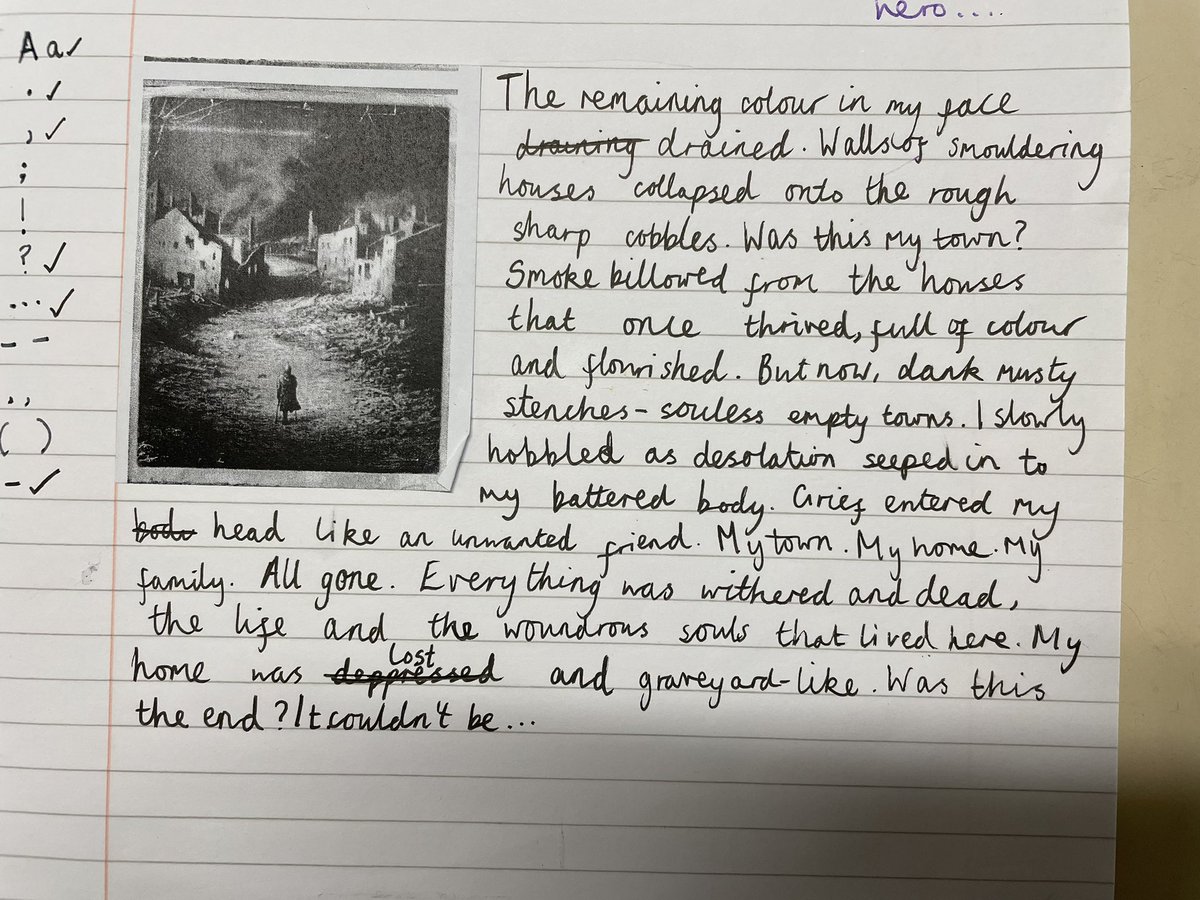 hero....
Aa✓
. ✓
, ✓
;
!
? ✓
... ✓
– –
, ,
( )
- ✓
The remaining colour in my face
~~draining~~ drained. Walls of smouldering
houses collapsed onto the rough
sharp cobbles. Was this my town?
Smoke billowed from the houses
that once thrived, full of colour
and flourished. But now, dank musty
stenches - souless empty towns. I slowly
hobbled as desolation seeped in to
my battered body. Grief entered my
~~body~~ head like an unwanted friend. My town. My home. My
family. All gone. Everything was withered and dead,
the life and the woundrous souls that lived here. My
home was ~~deppressed~~ lost and graveyard-like. Was this
the end? It couldn't be...